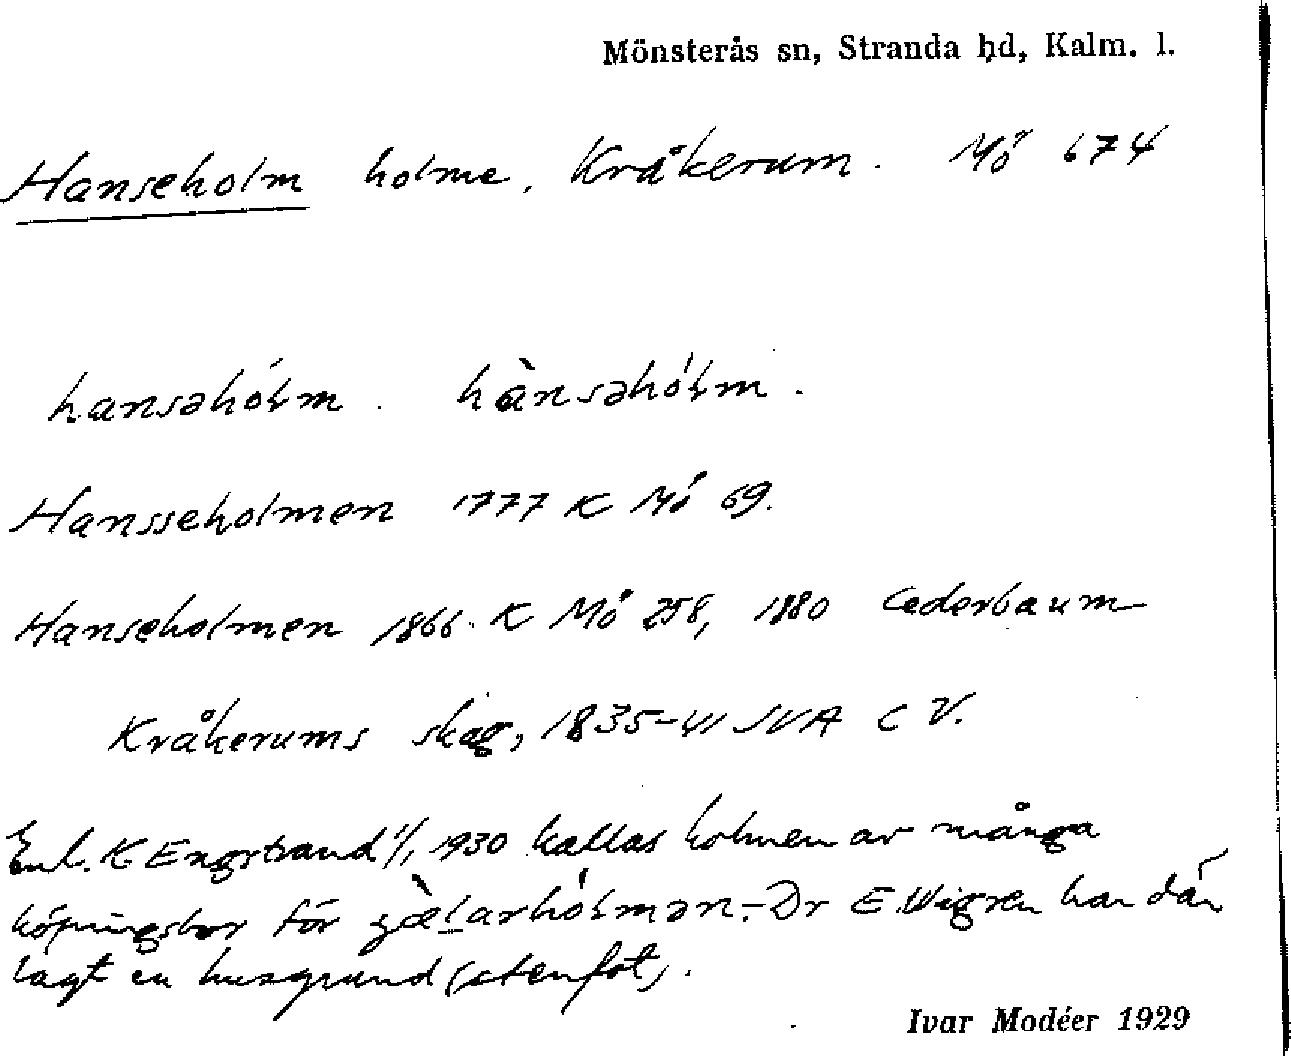 Mönsterås sn, Stranda hd, Kalm. l.
Hanseholm holme, Kråkerum. Mö 674
hansəhóɫm. hànsəhóɫm.
Hansseholmen 1777 K Mö 69.
Hanseholmen 1866. K Mö 258, 1880 Cederbaum
Kråkerums skog, 1835-41 JVA C V.
Enl. K Engstrand 1/1 1930 kallas holmen av många
köpingsbor för holmən. - Dr E. Wigren har där
lagt en husgrund (stenfot).
Ivar Modéer 1929